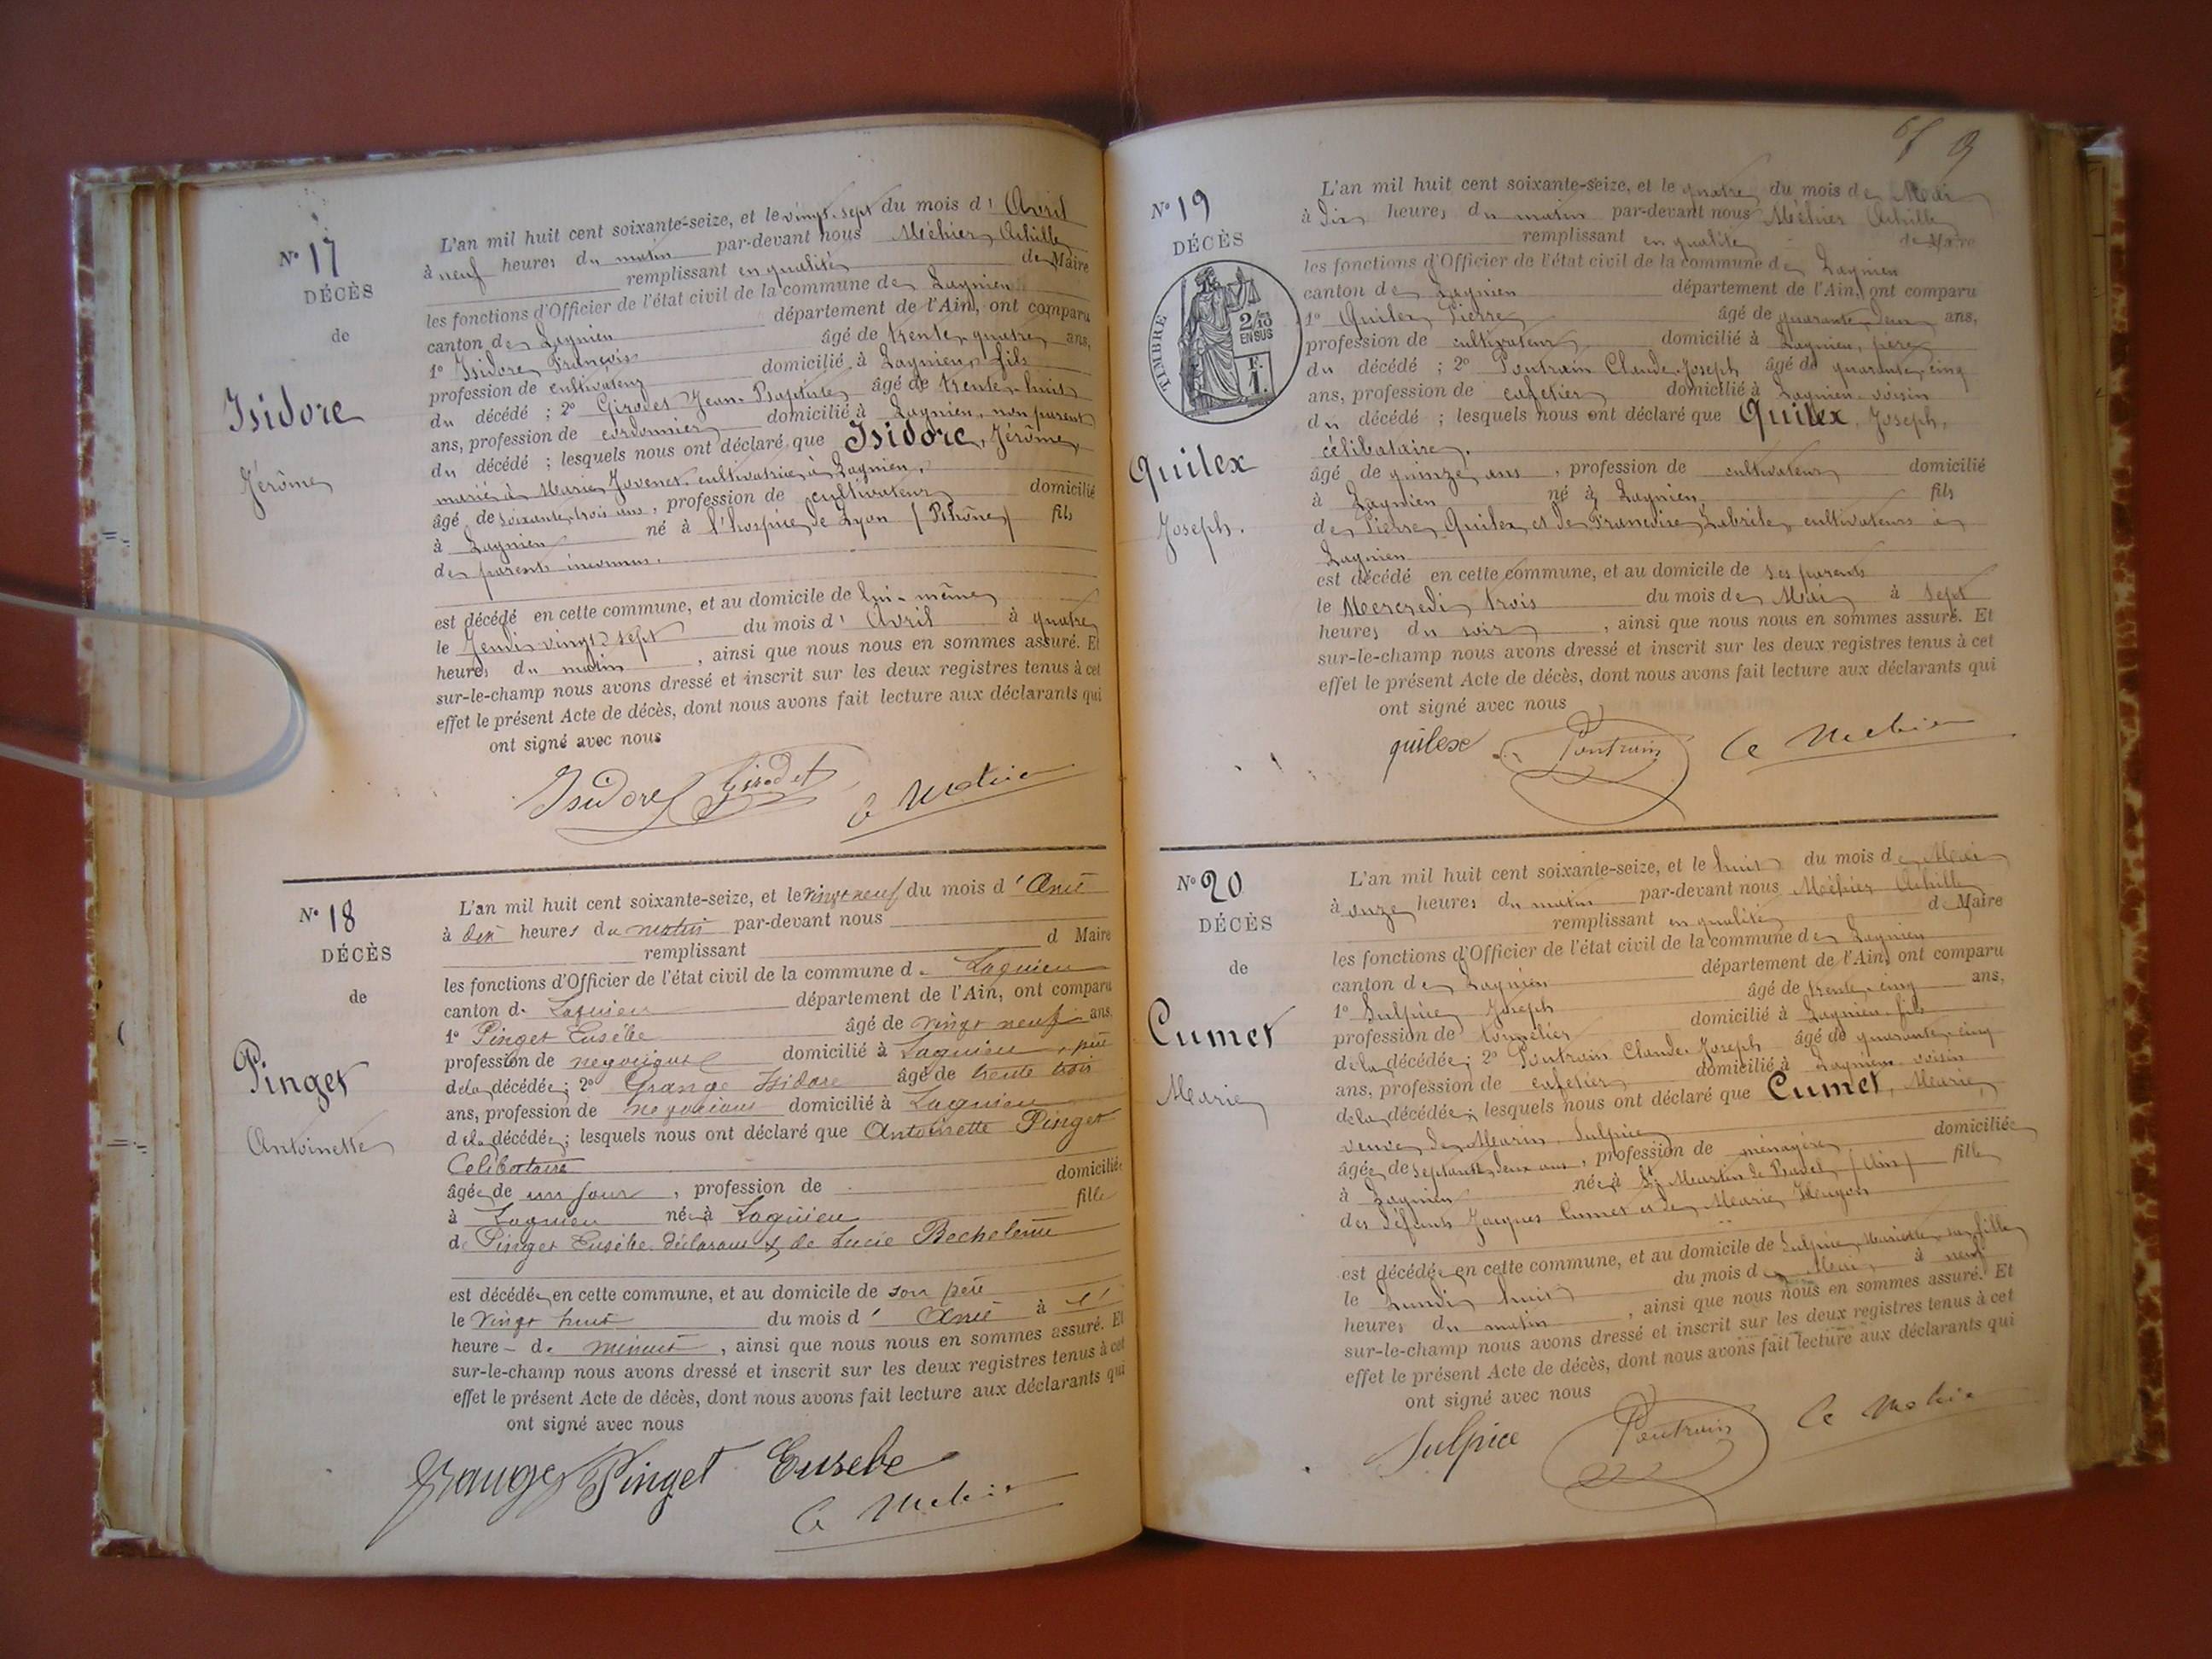 N° 17
DÉCÈS
de
Isidore
Jérôme
L'an mil huit cent soixante-seize, et le vingt-sept du mois d' Avril
à neuf heures du matin par-devant nous Méhier Achille
remplissant en qualité de Maire
les fonctions d'Officier de l'état civil de la commune de Lagnieu
canton de Lagnieu département de l'Ain, ont comparu
1° Isidore François âgé de trente-quatre ans,
profession de cultivateur domicilié à Lagnieu, fils
du décédé ; 2° Girodet Jean-Baptiste âgé de trente-huit
ans, profession de cordonnier domicilié à Lagnieu, non parent
du décédé ; lesquels nous ont déclaré que Isidore, Jérôme,
marié à Marie Jovenet, cultivatrice à Lagnieu,
âgé de soixante-trois ans, profession de cultivateur domicilié
à Lagnieu né à l'hospice de Lyon (Rhône) fils
de parents inconnus.
est décédé en cette commune, et au domicile de lui-même
le Jeudi vingt-sept du mois d' Avril à quatre
heures du matin, ainsi que nous nous en sommes assuré. Et
sur-le-champ nous avons dressé et inscrit sur les deux registres tenus à cet
effet le présent Acte de décès, dont nous avons fait lecture aux déclarants qui
ont signé avec nous
Isidore Girodet A Méhier
N° 18
DÉCÈS
de
Pinget
Antoinette
L'an mil huit cent soixante-seize, et le vingt neuf du mois d' Avril
à dix heures du matin par-devant nous
remplissant d Maire
les fonctions d'Officier de l'état civil de la commune d. Lagnieu
canton d. Lagnieu département de l'Ain, ont comparu
1° Pinget Eusébe âgé de vingt neuf ans,
profession de negociant domicilié à Lagnieu, père
de la décédée ; 2° Grange Isidore âgé de trente trois
ans, profession de negociant domicilié à Lagnieu
de la décédée ; lesquels nous ont déclaré que Antoinette Pinget
Celibataire
âgée de un jour, profession de domiciliée
à Lagnieu née à Lagnieu fille
de Pinget Eusébe déclarant & de Lucie
est décédée en cette commune, et au domicile de son père
le vingt huit du mois d' Avril à
heure d. minuit, ainsi que nous nous en sommes assuré. Et
sur-le-champ nous avons dressé et inscrit sur les deux registres tenus à cet
effet le présent Acte de décès, dont nous avons fait lecture aux déclarants qui
ont signé avec nous
Grange Pinget Eusebe
A Méhier
9
N° 19
DÉCÈS
TIMBRE
2/10 EN SUS
F. 1.
Quilex
Joseph.
L'an mil huit cent soixante-seize, et le quatre du mois de Mai
à dix heures du matin par-devant nous Méhier Achille
remplissant en qualité de Maire
les fonctions d'Officier de l'état civil de la commune de Lagnieu
canton de Lagnieu département de l'Ain, ont comparu
1° Quilex Pierre âgé de quarante-deux ans,
profession de cultivateur domicilié à Lagnieu, père
du décédé ; 2° Pontrain Claude-Joseph âgé de quarante-cinq
ans, profession de cafetier domicilié à Lagnieu voisin
du décédé ; lesquels nous ont déclaré que Quilex, Joseph,
célibataire,
âgé de quinze ans, profession de cultivateur domicilié
à Lagnieu né à Lagnieu fils
de Pierre Quilex et de Françoise cultivateurs à
Lagnieu
est décédé en cette commune, et au domicile de ses parents
le Mercredi trois du mois de Mai à sept
heures du soir, ainsi que nous nous en sommes assuré. Et
sur-le-champ nous avons dressé et inscrit sur les deux registres tenus à cet
effet le présent Acte de décès, dont nous avons fait lecture aux déclarants qui
ont signé avec nous
quilex Pontrain A Méhier
N° 20
DÉCÈS
de
Cumet
Marie
L'an mil huit cent soixante-seize, et le huit du mois de Mai
à onze heures du matin par-devant nous Méhier Achille
remplissant en qualité de Maire
les fonctions d'Officier de l'état civil de la commune de Lagnieu
canton de Lagnieu département de l'Ain, ont comparu
1° Sulpice Joseph âgé de trente-cinq ans,
profession de tonnelier domicilié à Lagnieu fils
de la décédée ; 2° Pontrain Claude-Joseph âgé de quarante-cinq
ans, profession de cafetier domicilié à Lagnieu voisin
de la décédée ; lesquels nous ont déclaré que Cumet, Marie,
veuve de Marin Sulpice
âgée de septante-deux ans, profession de ménagère domiciliée
à Lagnieu née à St Martin de Bavel (Ain) fille
des défunts Jacques Cumet et de Marie
est décédée en cette commune, et au domicile de Sulpice, Mariette, sa fille
le Lundi huit du mois de Mai à neuf
heures du matin, ainsi que nous nous en sommes assuré. Et
sur-le-champ nous avons dressé et inscrit sur les deux registres tenus à cet
effet le présent Acte de décès, dont nous avons fait lecture aux déclarants qui
ont signé avec nous
Sulpice Pontrain A Méhier